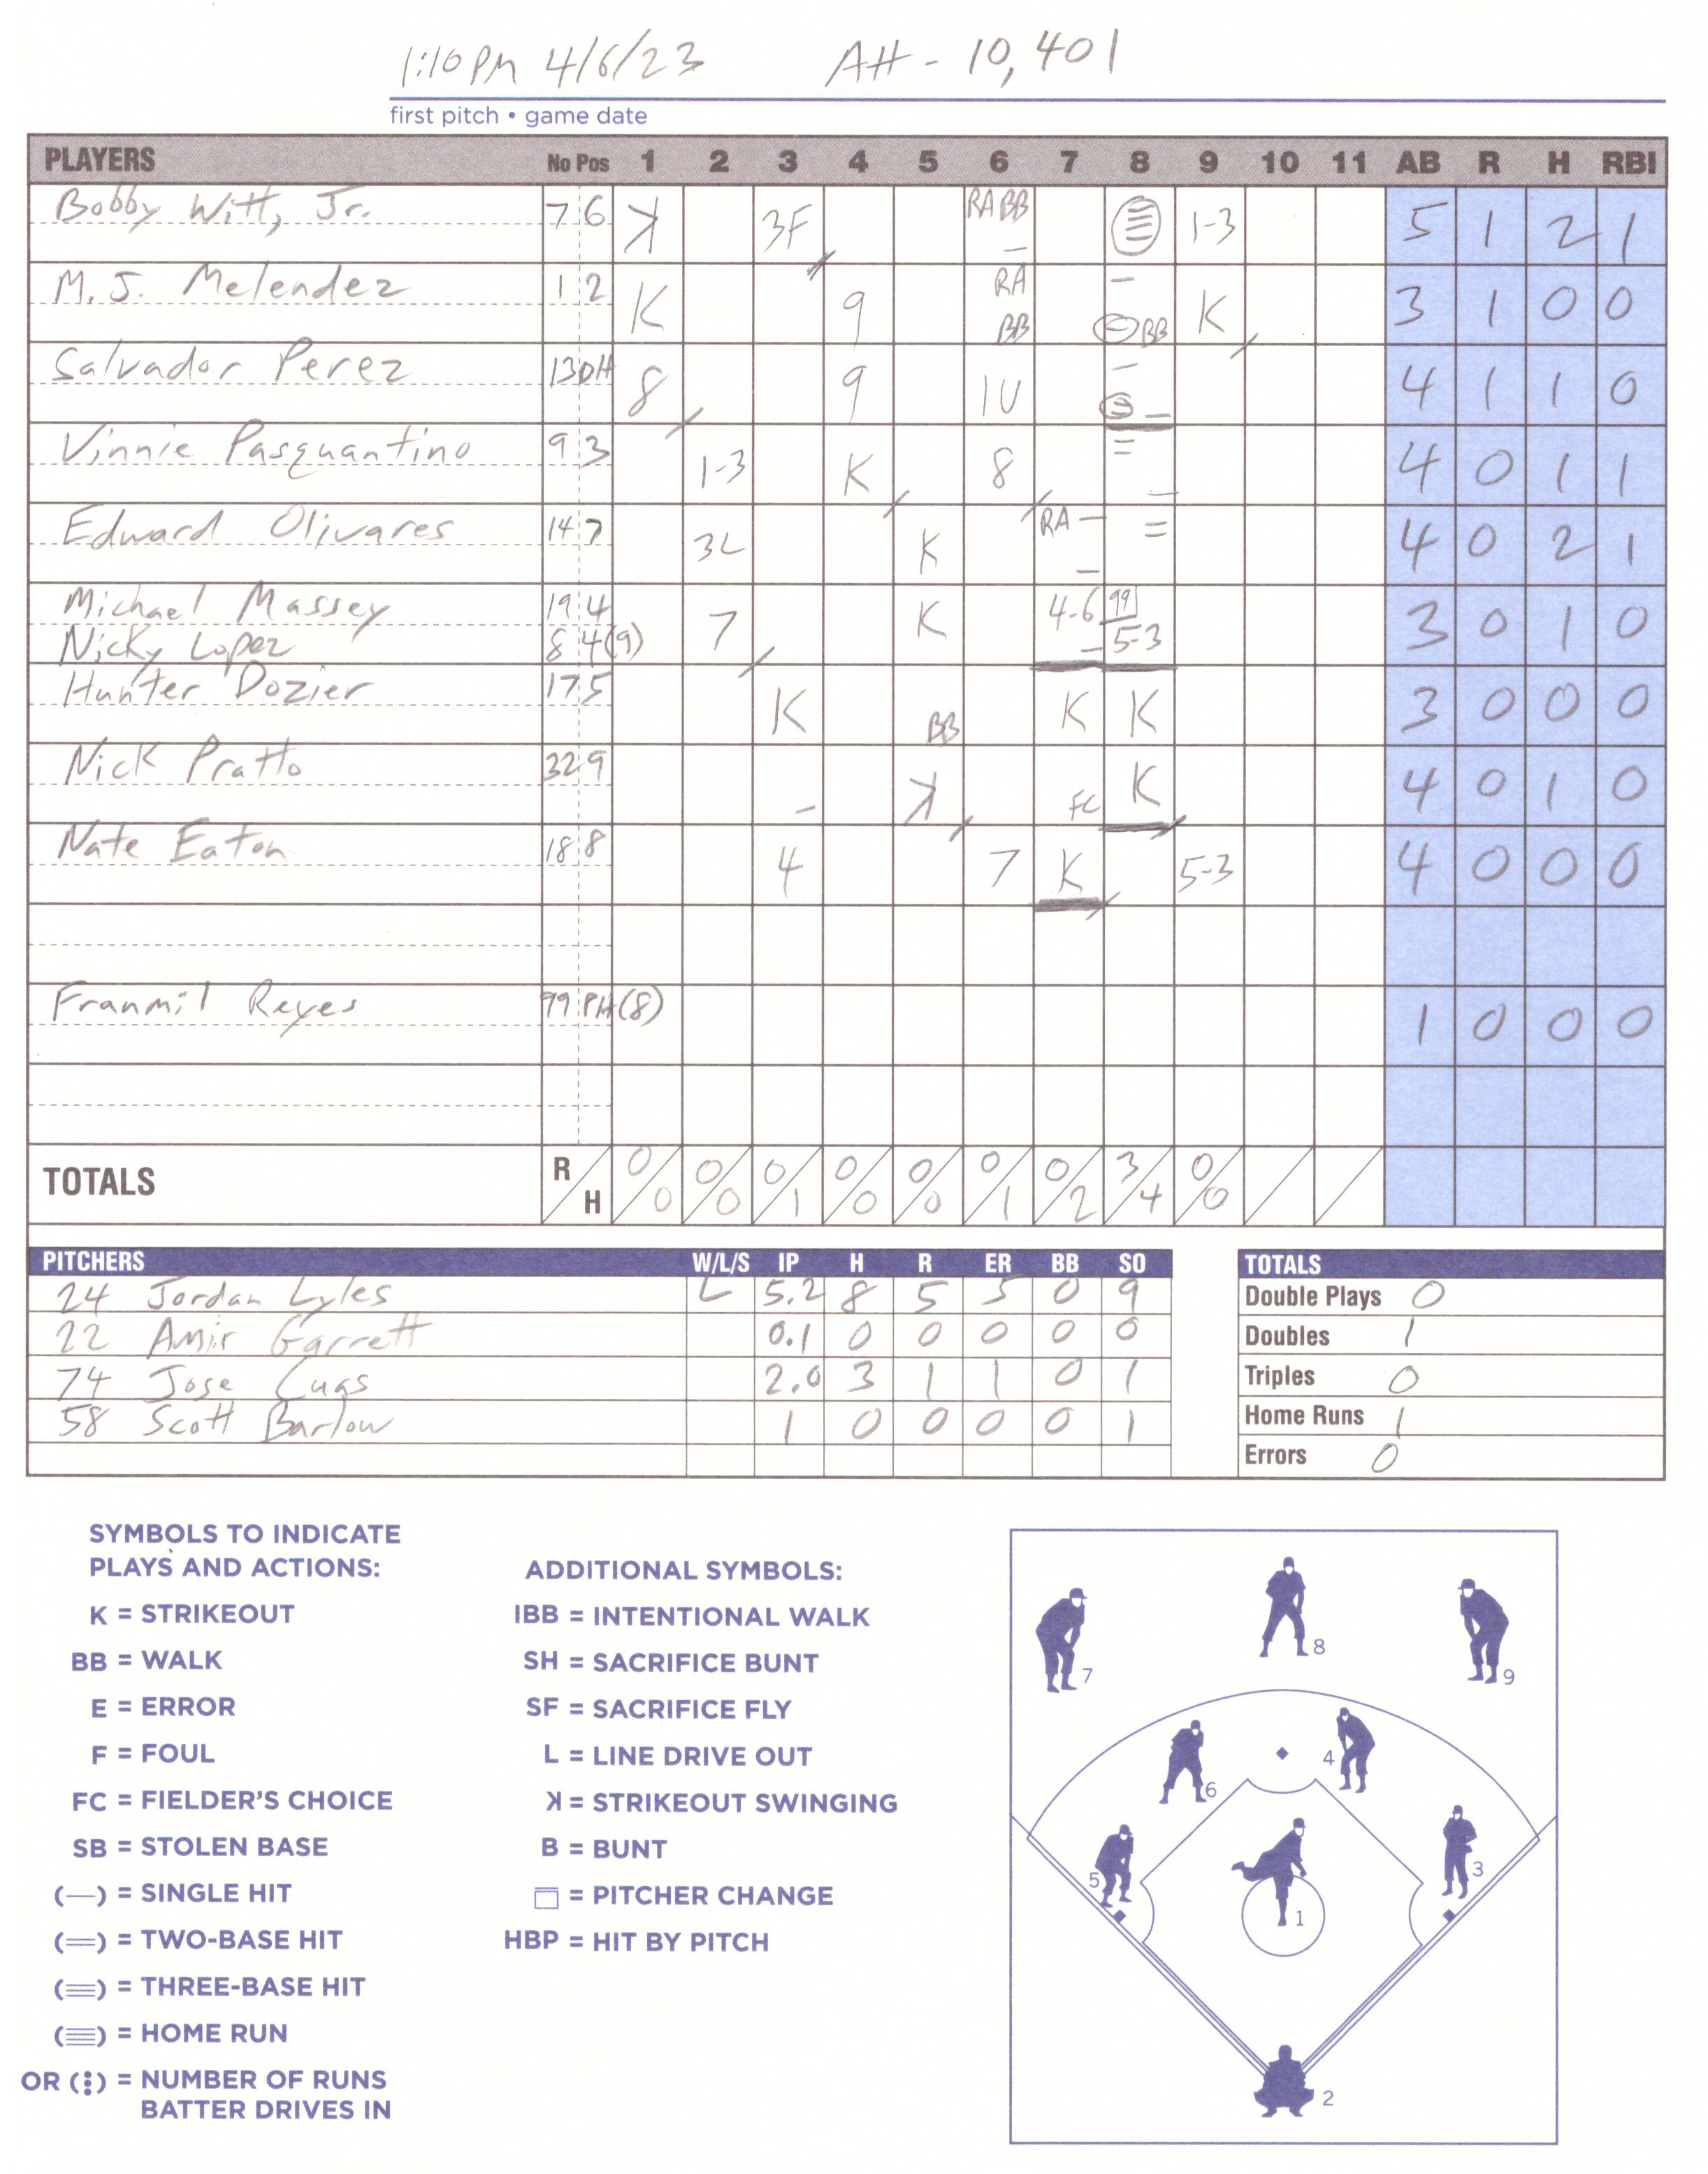 1:10 PM 4/6/23 Att - 10,401
first pitch • game date
PLAYERS No Pos 1 2 3 4 5 6 7 8 9 10 11 AB R H RBI
Bobby Witt, Jr. 7 6 ꓘ 3F RA BB — 1-3 5 1 2 1
M.J. Melendez 1 2 K 9 RA BB — BB K 3 1 0 0
Salvador Perez 13 DH 8 9 1U — — 4 1 1 0
Vinnie Pasquantino 9 3 1-3 K 8 = — 4 0 1 1
Edward Olivares 14 7 3L K RA — — = 4 0 2 1
Michael Massey 19 4 7 K 4-6 — 99 5-3 3 0 1 0
Nicky Lopez 8 4(9)
Hunter Dozier 17 5 K BB K K 3 0 0 0
Nick Pratto 32 9 — ꓘ FC K 4 0 1 0
Nate Eaton 18 8 4 7 K 5-3 4 0 0 0
Franmil Reyes 99 PH(8) 1 0 0 0
TOTALS R/H 0/0 0/0 0/1 0/0 0/0 0/1 0/2 3/4 0/0
PITCHERS W/L/S IP H R ER BB SO
24 Jordan Lyles L 5.2 8 5 5 0 9
22 Amir Garrett 0.1 0 0 0 0 0
74 Jose Cuas 2.0 3 1 1 0 1
58 Scott Barlow 1 0 0 0 0 1
TOTALS
Double Plays 0
Doubles 1
Triples 0
Home Runs 1
Errors 0
SYMBOLS TO INDICATE
PLAYS AND ACTIONS:
K = STRIKEOUT
BB = WALK
E = ERROR
F = FOUL
FC = FIELDER'S CHOICE
SB = STOLEN BASE
(—) = SINGLE HIT
(=) = TWO-BASE HIT
(≡) = THREE-BASE HIT
(≣) = HOME RUN
OR (⋮) = NUMBER OF RUNS
BATTER DRIVES IN
ADDITIONAL SYMBOLS:
IBB = INTENTIONAL WALK
SH = SACRIFICE BUNT
SF = SACRIFICE FLY
L = LINE DRIVE OUT
ꓘ = STRIKEOUT SWINGING
B = BUNT
= PITCHER CHANGE
HBP = HIT BY PITCH
8
7 9
4
6
5 3
1
2